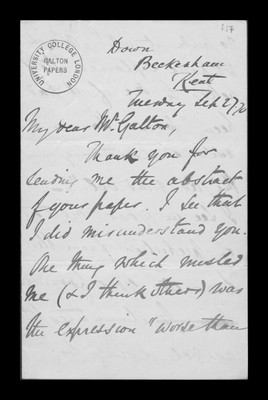 117
UNIVERSITY COLLEGE LONDON
GALTON
PAPERS
Down
Beckenham
Kent
Tuesday Sep 27/
My dear Mr. Galton,
Thank you for
sending me the abstract
of your paper. I see that
I did misunderstand you.
One thing which misled
me (& I think others) was
the expression "worse than